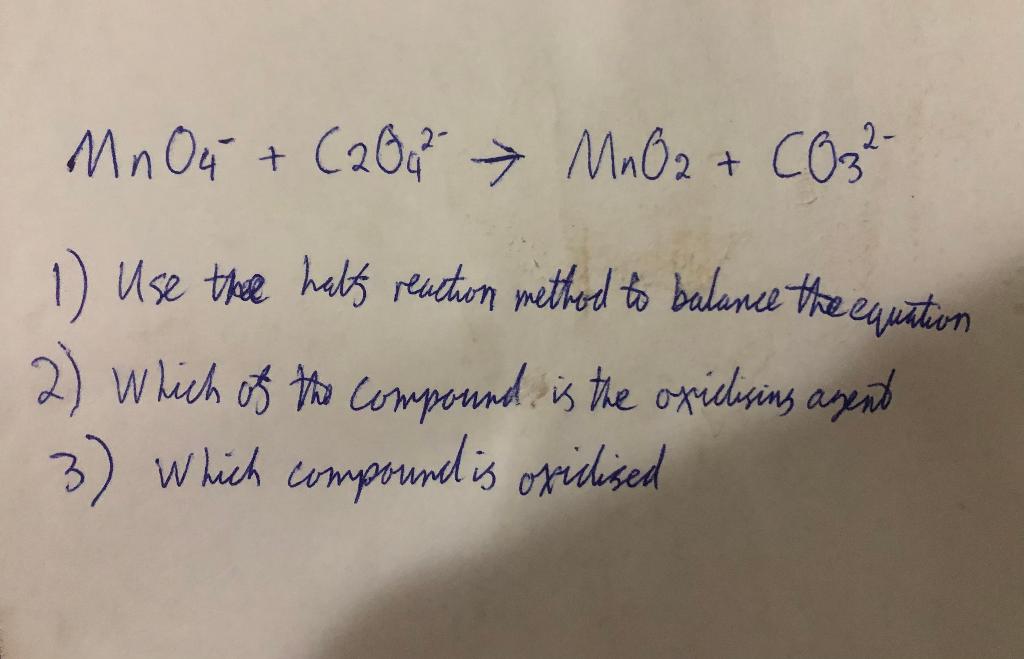 MnO₄⁻ + C₂O₄²⁻ → MnO₂ + CO₃²⁻
1) Use the half reaction method to balance the equation
2) Which of the compound is the oxidising agent
3) Which compound is oxidised